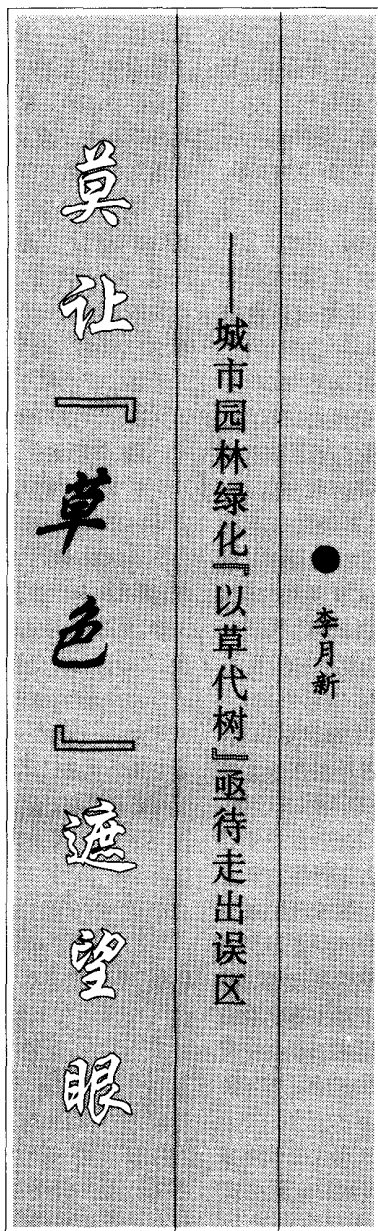 莫让『草色』遮望眼
——城市园林绿化『以草代树』亟待走出误区
●李月新